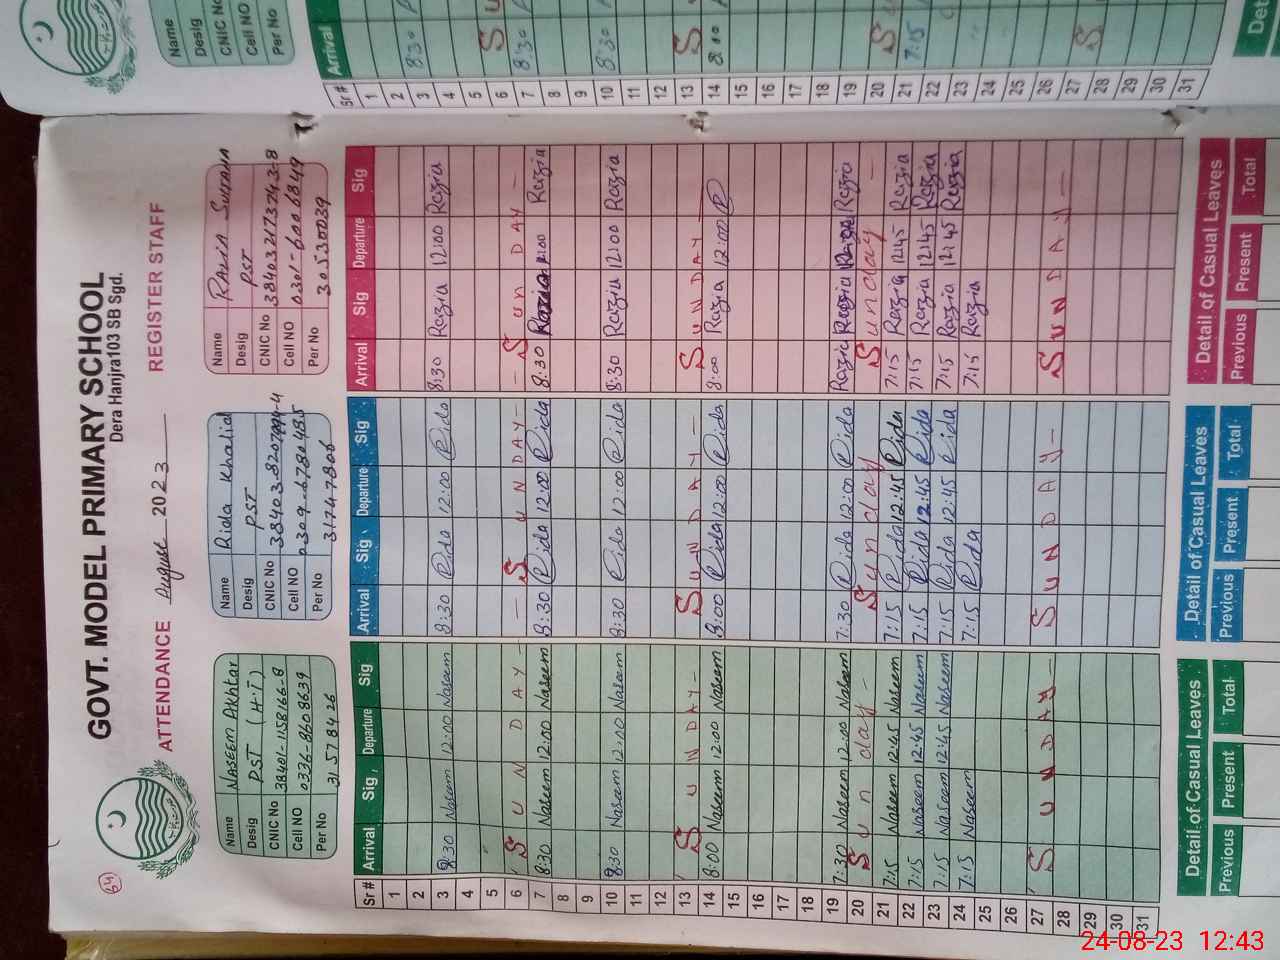 64
GOVT. MODEL PRIMARY SCHOOL
Dera Hanjra103 SB Sgd.
ATTENDANCE August 2023 REGISTER STAFF
Name Naseem Akhtar
Desig PST (H.T)
CNIC No 38401-1158166-8
Cell NO 0336-8608639
Per No 31578426
Name Rida Khalid
Desig PST
CNIC No
Cell NO 0309-6780485
Per No 31747806
Name
Desig PST
CNIC No 384032173743-8
Cell NO 0301-6006849
Per No 30530039
Sr# Arrival Sig Departure Sig Arrival Sig Departure Sig Arrival Sig Departure Sig
1
2
3 8:30 Naseem 12:00 Naseem 8:30 Rida 12:00 Rida 8:30 Razia 12:00 Razia
4
5
6 SUNDAY - - SUNDAY - - SUNDAY -
7 8:30 Naseem 12:00 Naseem 8:30 Rida 12:00 Rida 8:30 Razia 12:00 Razia
8
9
10 8:30 Naseem 12:00 Naseem 8:30 Rida 12:00 Rida 8:30 Razia 12:00 Razia
11
12
13 SUNDAY - SUNDAY - SUNDAY
14 8:00 Naseem 12:00 Naseem 8:00 Rida 12:00 Rida 8:00 Razia 12:00 R
15
16
17
18
19 7:30 Naseem 12:00 Naseem 7:30 Rida 12:00 Rida Razia Razia Razia Razia
20 Sunday - Sunday Sunday -
21 7:15 Naseem 12:45 Naseem 7:15 Rida 12:45 Rida 7:15 Razia 12:45 Razia
22 7:15 Naseem 12:45 Naseem 7:15 Rida 12:45 Rida 7:15 Razia 12:45 Razia
23 7:15 Naseem 12:45 Naseem 7:15 Rida 12:45 Rida 7:15 Razia 12:45 Razia
24 7:15 Naseem 7:15 Rida 7:15 Razia
25
26
27 SUNDAY - SUNDAY - SUNDAY -
28
29
30
31
Detail of Casual Leaves Detail of Casual Leaves Detail of Casual Leaves
Previous Present Total Previous Present Total Previous Present Total
Name
Desig
CNIC No
Cell NO
Per No
Sr# Arrival
1
2
3 8:30
4
5
6 S
7 8:30
8
9
10 8:30
11
12
13 S
14 8:00
15
16
17
18
19
20 S
21 7:15
22
23
24
25
26
27 S
28
29
30
31
24-08-23 12:43